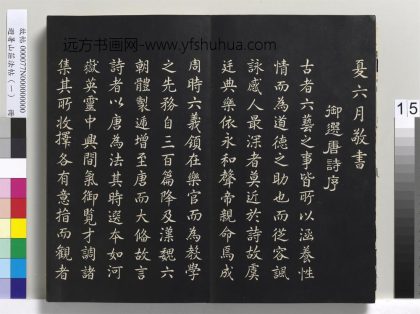 夏六月敬書
御選唐詩序
古者六藝之事皆所以涵養性
情而為道德之助也而從容諷
詠感人最深者莫近於詩故虞
廷典樂依永和聲帝親命焉成
周時六義領在樂官而為教學
之先務自三百篇降及漢魏六
朝體製遞增至唐而大俻故言
詩者以唐為法其時選本如河
嶽英靈中興間氣御覽才調諸
集其所收擇各有意指而觀者
远方书画网-www.yfshuhua.com
故帖 000077N000000000
避暑山莊法帖（一） 冊
15